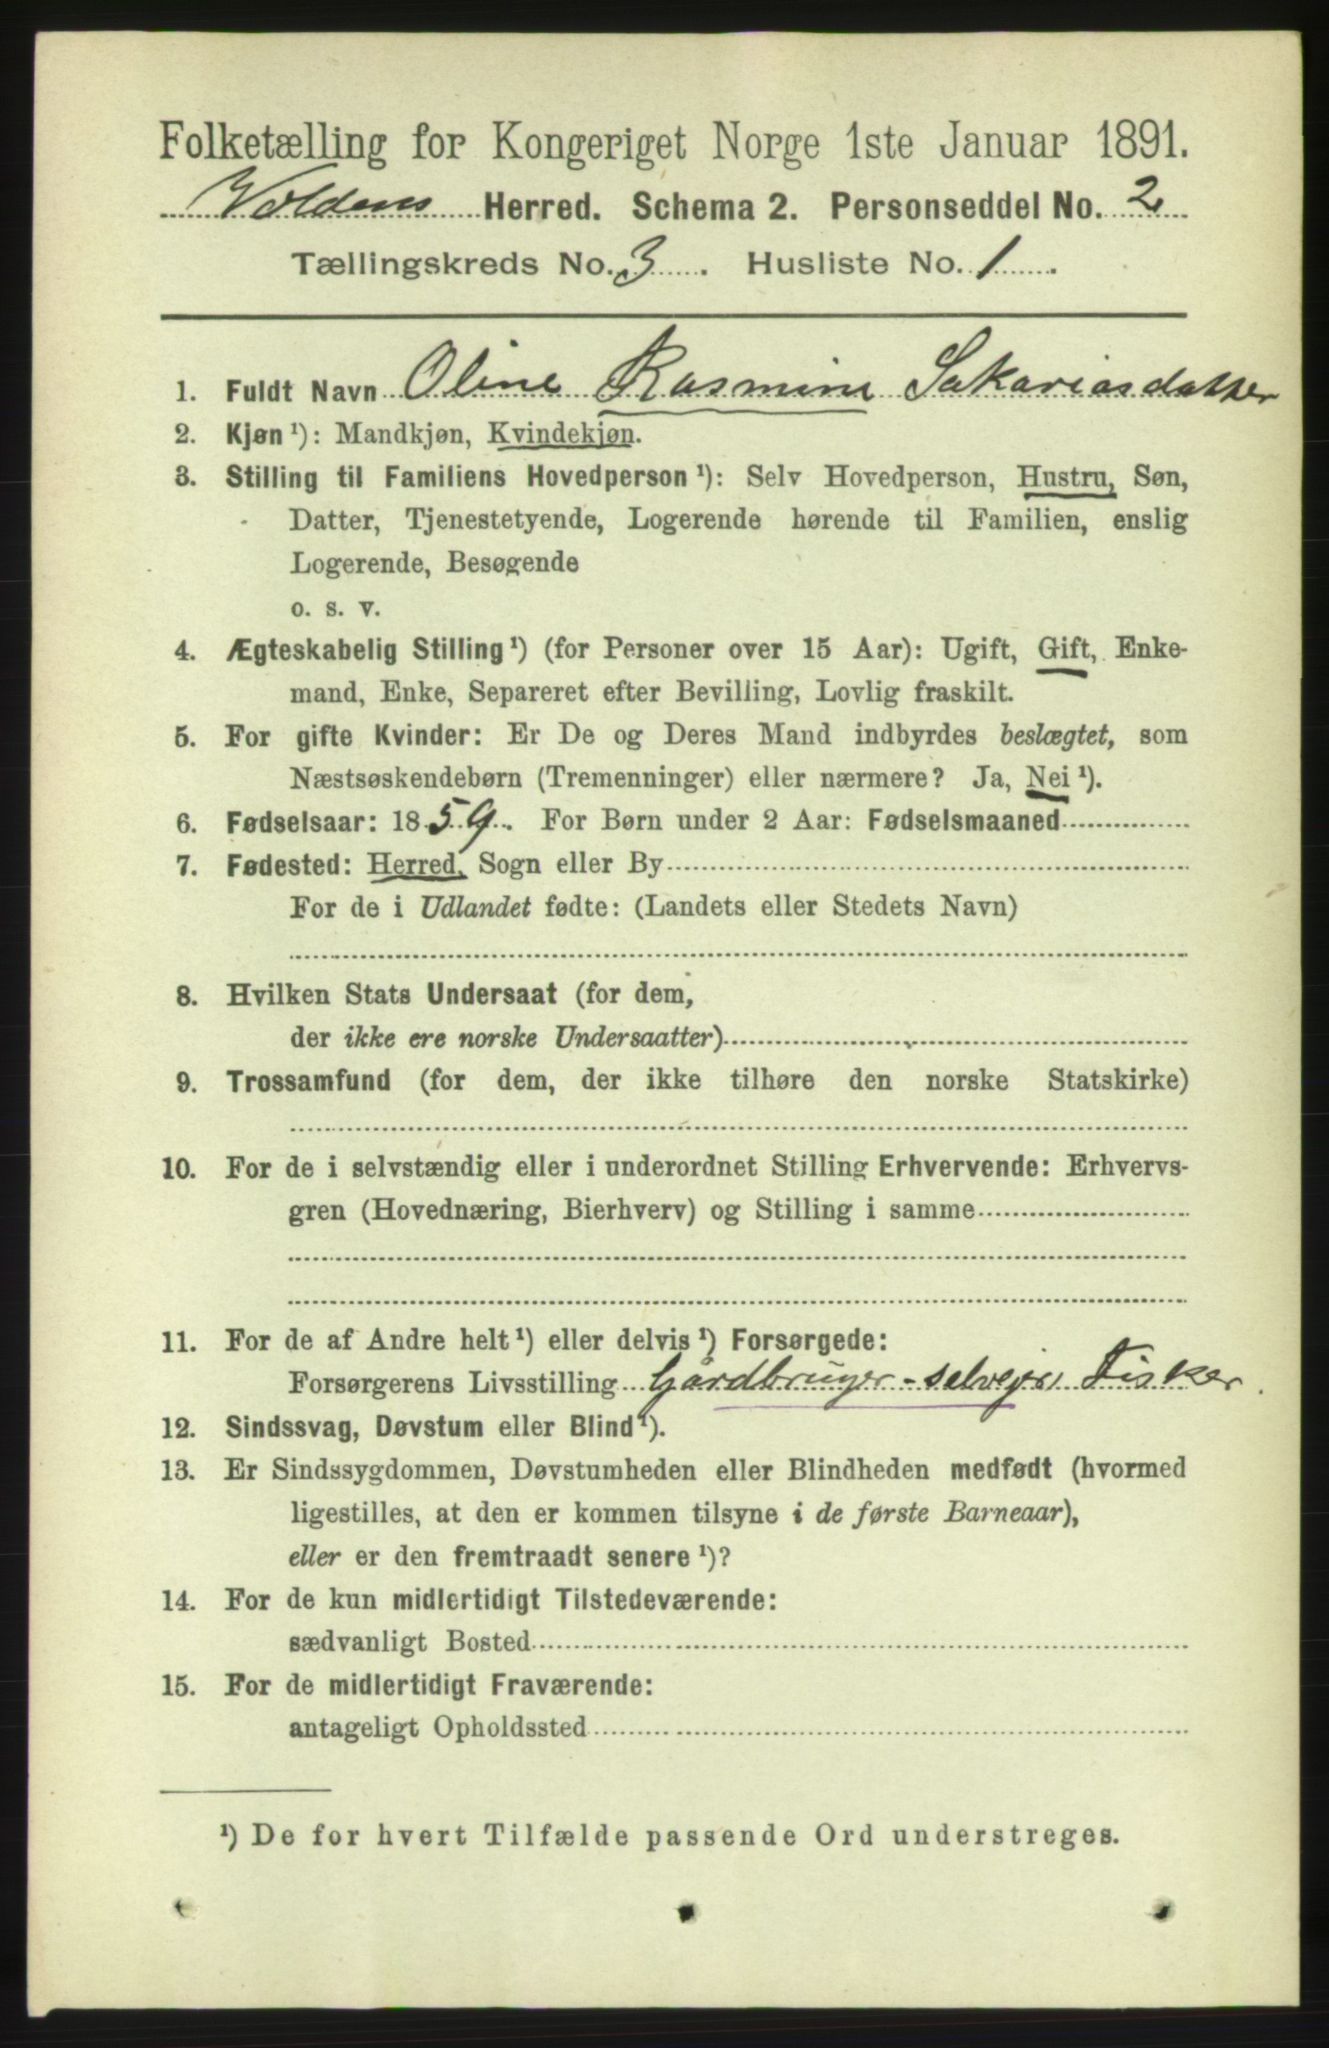 Folketælling for Kongeriget Norge 1ste Januar 1891.
Voldens Herred. Schema 2. Personseddel No. 2
Tællingskreds No. 3. Husliste No. 1.
1. Fuldt Navn Oline Rasmine Sakariasdatter
2. Kjøn ¹): Mandkjøn, Kvindekjøn.
3. Stilling til Familiens Hovedperson ¹): Selv Hovedperson, Hustru, Søn,
Datter, Tjenestetyende, Logerende hørende til Familien, enslig
Logerende, Besøgende
o. s. v.
4. Ægteskabelig Stilling ¹) (for Personer over 15 Aar): Ugift, Gift, Enke-
mand, Enke, Separeret efter Bevilling, Lovlig fraskilt.
5. For gifte Kvinder: Er De og Deres Mand indbyrdes beslægtet, som
Næstsøskendebørn (Tremenninger) eller nærmere? Ja, Nei ¹).
6. Fødselsaar: 1859. For Børn under 2 Aar: Fødselsmaaned
7. Fødested: Herred, Sogn eller By
For de i Udlandet fødte: (Landets eller Stedets Navn)
8. Hvilken Stats Undersaat (for dem,
der ikke ere norske Undersaatter)
9. Trossamfund (for dem, der ikke tilhøre den norske Statskirke)
10. For de i selvstændig eller i underordnet Stilling Erhvervende: Erhvervs-
gren (Hovednæring, Bierhverv) og Stilling i samme
11. For de af Andre helt ¹) eller delvis ¹) Forsørgede:
Forsørgerens Livsstilling Gårdbruger-selvejer, Fisker.
12. Sindssvag, Døvstum eller Blind ¹).
13. Er Sindssygdommen, Døvstumheden eller Blindheden medfødt (hvormed
ligestilles, at den er kommen tilsyne i de første Barneaar),
eller er den fremtraadt senere ¹)?
14. For de kun midlertidigt Tilstedeværende:
sædvanligt Bosted
15. For de midlertidigt Fraværende:
antageligt Opholdssted
¹) De for hvert Tilfælde passende Ord understreges.